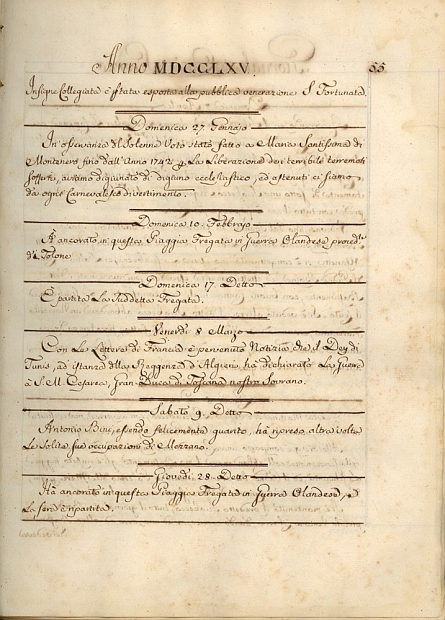 Anno MDCCLXV. 55
Insigne Collegiata è stata esposta alla pubblica venerazione S. Fortunata.
Domenica 27 Gennajo
In osservanza del solenne Voto stato fatto a Maria Santissima di
Montenero fino dall'Anno 1742 p. La Liberazione dei terribili terremoti
sofferti, aviamo digiunato di digiuno ecclesiastico, ed astenuti ci siamo
da ogni Carnevalesco divertimento.
Domenica 10 Febbrajo
È ancorato in questa Piaggia Fregata in Guerra Olandese proved.te
da Tolone.
Domenica 17 Detto
È partita La suddetta Fregata.
Venerdì 8 Marzo
Con Le Lettere di Francia è pervenuta Notizia che il Dey di
Tunis, ad istanza della Reggenza d'Algieri, ha dichiarato La Guerra
a S. M. Cesarea, Gran-Duca di Toscana nostro Sovrano.
Sabato 9 Detto
Antonio Bini, essendo felicemente guarito, ha ripreso altra volta
Le Solite sue occupazioni di Mezzano.
Giovedì 28 Detto
Ha ancorato in questa Piaggia Fregata in Guerra Olandese, e
La sera è ripartita.